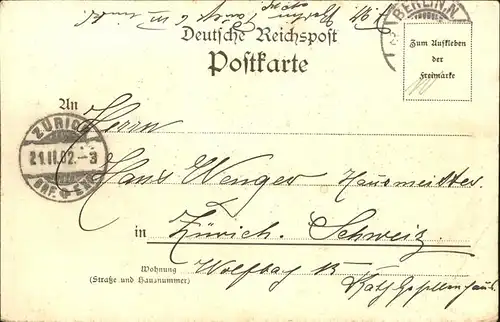 BERLIN.N
Deutsche Reichspost
Postkarte
Zum Aufkleben
der
Freimarke
An
Herrn
ZÜRICH
21.II.02.-3
BRF.
Hans Wenger Hausmeister
in Zürich. Schweiz
Wohnung
(Straße und Hausnummer)
Wolfbag 15
Kath. Gesellenhaus.